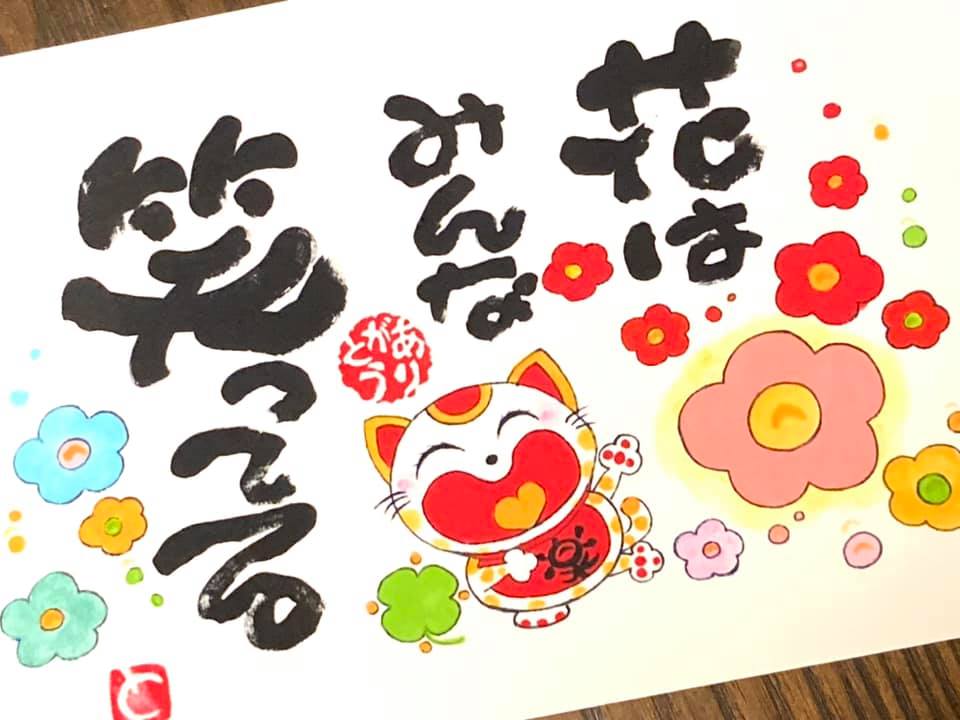 花は
みんな
笑ってる
ありがとう
と